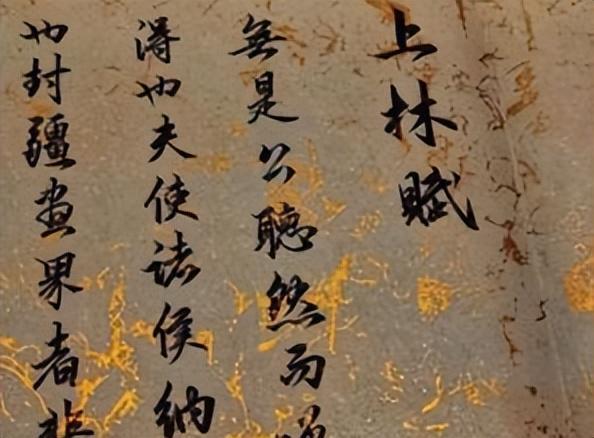 上林賦
無是公聽然而
得也夫使諸侯納
也封疆畫果者